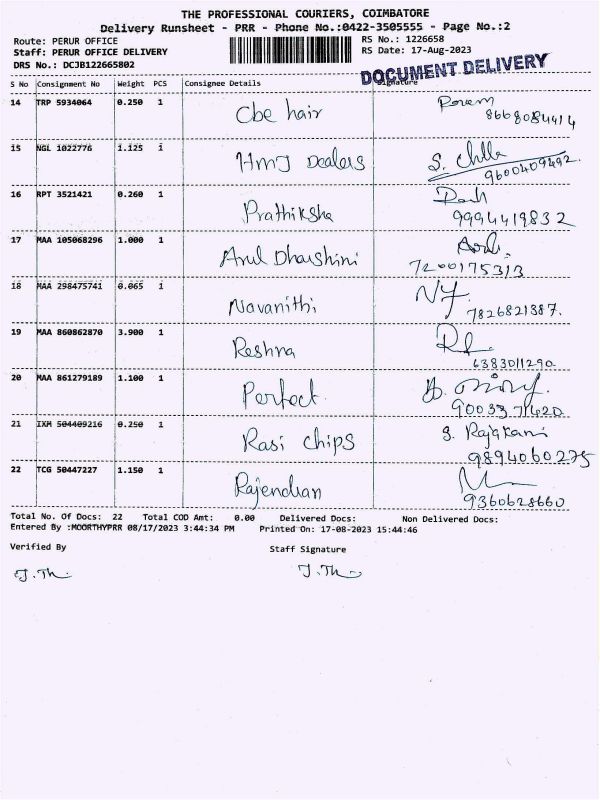 THE PROFESSIONAL COURIERS, COIMBATORE
Delivery Runsheet - PRR - Phone No.:0422-3505555 - Page No.:2
Route: PERUR OFFICE RS No.: 1226658
Staff: PERUR OFFICE DELIVERY RS Date: 17-Aug-2023
DRS No.: DCJB122665802 DOCUMENT DELIVERY
S No Consignment No Weight PCS Consignee Details Signature
14 TRP 5934064 0.250 1 Cbe hair
8668084414
15 NGL 1022776 1.125 1 HMJ Dealers S.
9600409492.
16 RPT 3521421 0.260 1 Prathiksha
9994419832
17 MAA 105068296 1.000 1 Arul Dharshini
7200175313
18 MAA 298475741 0.065 1 Navanithi
7826821387.
19 MAA 860862870 3.900 1 Reshna
6383011290
20 MAA 861279189 1.100 1 Perfect.
9003371420
21 IXM 504409216 0.250 1 Rasi chips S. Rajakani
9894060275
22 TCG 50447227 1.150 1 Rajendran
9360628660
Total No. Of Docs: 22 Total COD Amt: 0.00 Delivered Docs: Non Delivered Docs:
Entered By :MOORTHYPRR 08/17/2023 3:44:34 PM Printed On: 17-08-2023 15:44:46
Verified By Staff Signature